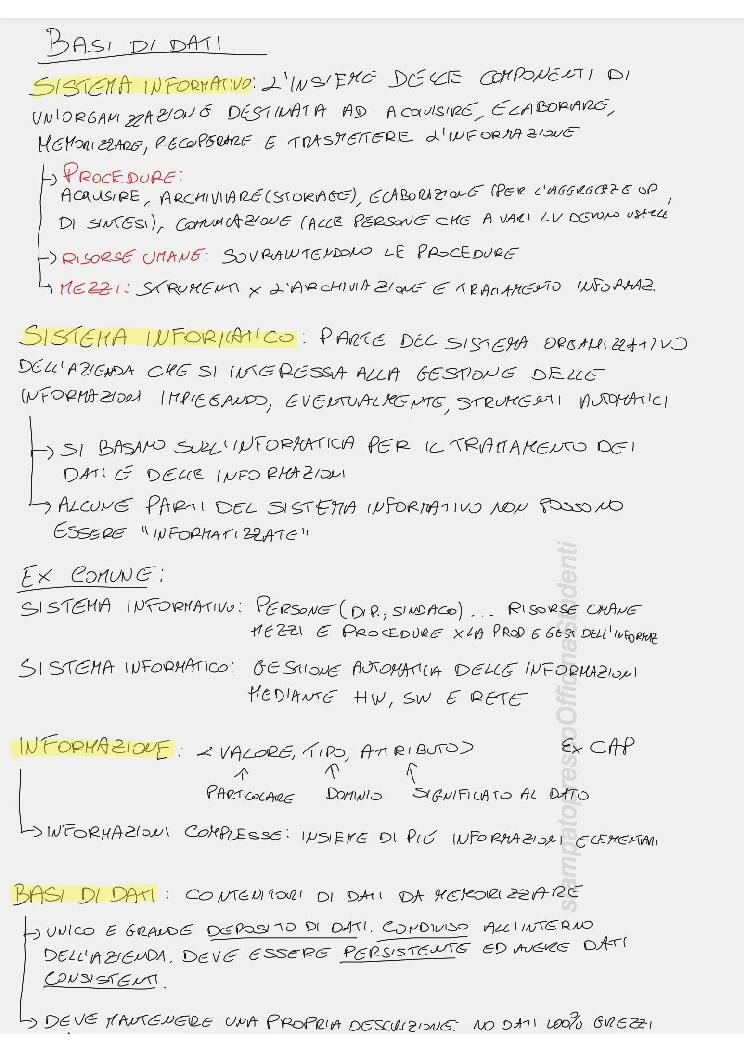 BASI DI DATI
SISTEMA INFORMATIVO: L'INSIEME DELLE COMPONENTI DI
UN'ORGANIZZAZIONE DESTINATA AD ACQUISIRE, ELABORARE,
MEMORIZZARE, RECUPERARE E TRASMETTERE L'INFORMAZIONE
→ PROCEDURE:
ACQUISIRE, ARCHIVIARE (STORAGE), ELABORAZIONE (PER L'AGGREGAZ E OP
DI SINTESI), COMUNICAZIONE (ALLE PERSONE CHE A VARI LV DEVONO USARLE
→ RISORSE UMANE: SOVRAINTENDONO LE PROCEDURE
→ MEZZI: STRUMENTI X L'ARCHIVIAZIONE E TRATTAMENTO INFORMAZ.
SISTEMA INFORMATICO: PARTE DEL SISTEMA ORGANIZZATIVO
DELL'AZIENDA CHE SI INTERESSA ALLA GESTIONE DELLE
INFORMAZIONI IMPIEGANDO, EVENTUALMENTE, STRUMENTI AUTOMATICI
→ SI BASANO SULL'INFORMATICA PER IL TRATTAMENTO DEI
DATI E DELLE INFORMAZIONI
→ ALCUNE PARTI DEL SISTEMA INFORMATIVO NON POSSONO
ESSERE "INFORMATIZZATE"
EX COMUNE:
SISTEMA INFORMATIVO: PERSONE (DIP., SINDACO) ... RISORSE UMANE
MEZZI E PROCEDURE X LA PROD E GES DELL'INFORMAZ
SISTEMA INFORMATICO: GESTIONE AUTOMATICA DELLE INFORMAZIONI
MEDIANTE HW, SW E RETE
INFORMAZIONE: <VALORE, TIPO, ATTRIBUTO> EX CAP
↑ ↑ ↑
PARTICOLARE DOMINIO SIGNIFICATO AL DATO
→ INFORMAZIONI COMPLESSE: INSIEME DI PIÚ INFORMAZIONI ELEMENTARI
BASI DI DATI: CONTENITORI DI DATI DA MEMORIZZARE
→ UNICO E GRANDE DEPOSITO DI DATI. CONDIVISO ALL'INTERNO
DELL'AZIENDA. DEVE ESSERE PERSISTENTE ED AVERE DATI
CONSISTENTI.
→ DEVE MANTENERE UNA PROPRIA DESCRIZIONE: NO DATI 100% GREZZI
stampatopressoOfficinaStudenti